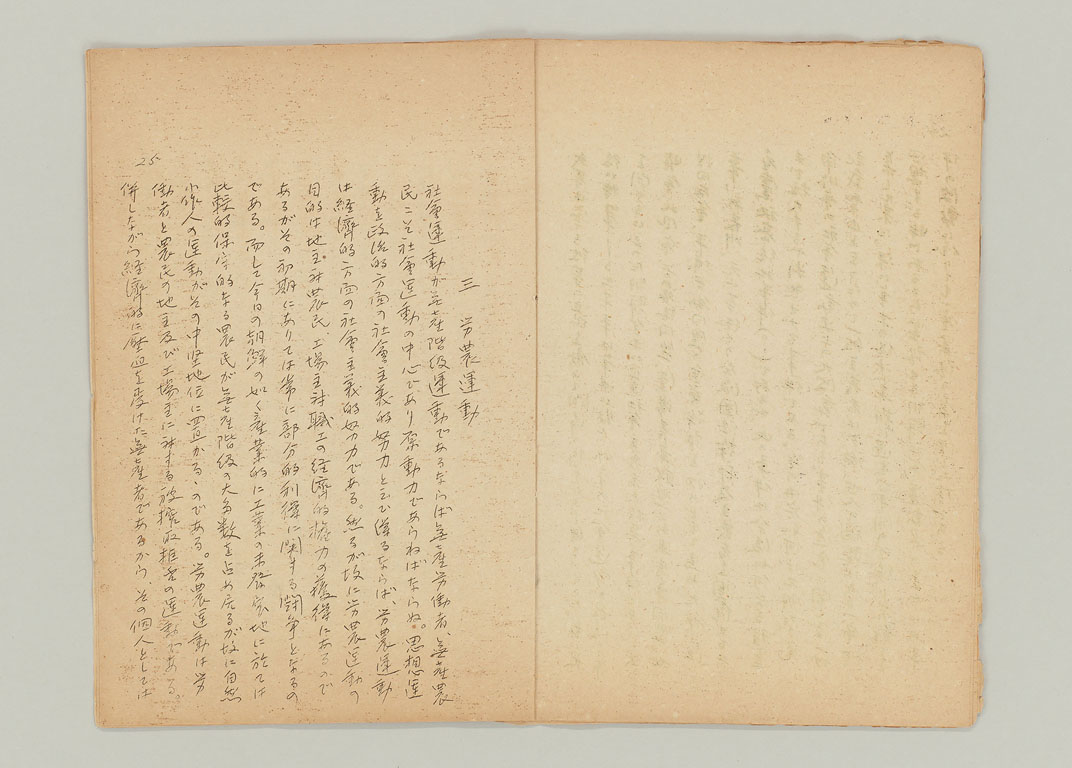 三 労農運動
社會運動が無産階級運動であるならば無産労働者、無産農
民こそ社會運動の中心であり原動力であらねばならぬ。思想運
動を政治的方面の社會主義的努力と云ひ得るならば、労農運動
は経済的方面の社會主義的努力である。然るが故に労農運動の
目的は地主対農民、工場主対職工の経済的権力の獲得にあるので
あるがその初期にありては常に部分的利得に関する闘争となるの
である。而して今日の朝鮮の如く産業的に工業の未発家地に於ては
比較的保守的なる農民が無産階級の大多数を占め居るが故に自然
小作人の運動がその中堅地位に置かるゝのである。労農運動は労
働者と農民の地主及び工場主に対する被搾取拒否の運動である。
併しながら経済的に圧迫を受けた無産者であるから、その個人としては
25